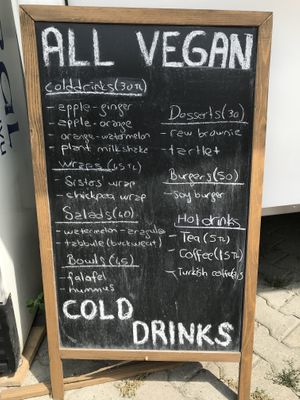 ALL VEGAN
colddrinks(30TL)
- apple-ginger
- apple-orange
- orange-watermelon
- plant milkshake
Wraps(45TL)
- Sistors wrap
- chickpea wrap
Salads(40)
- watermelon-arugula
- tabbule(buckweat)
Bowls(45)
- falafel
- hummus
Desserts(30)
- raw brownie
- tartlet
Burgers(50)
- Soy burger
Hotdrinks
- Tea(5TL)
- Coffee(15TL)
- Turkish coffee
COLD
DRINKS